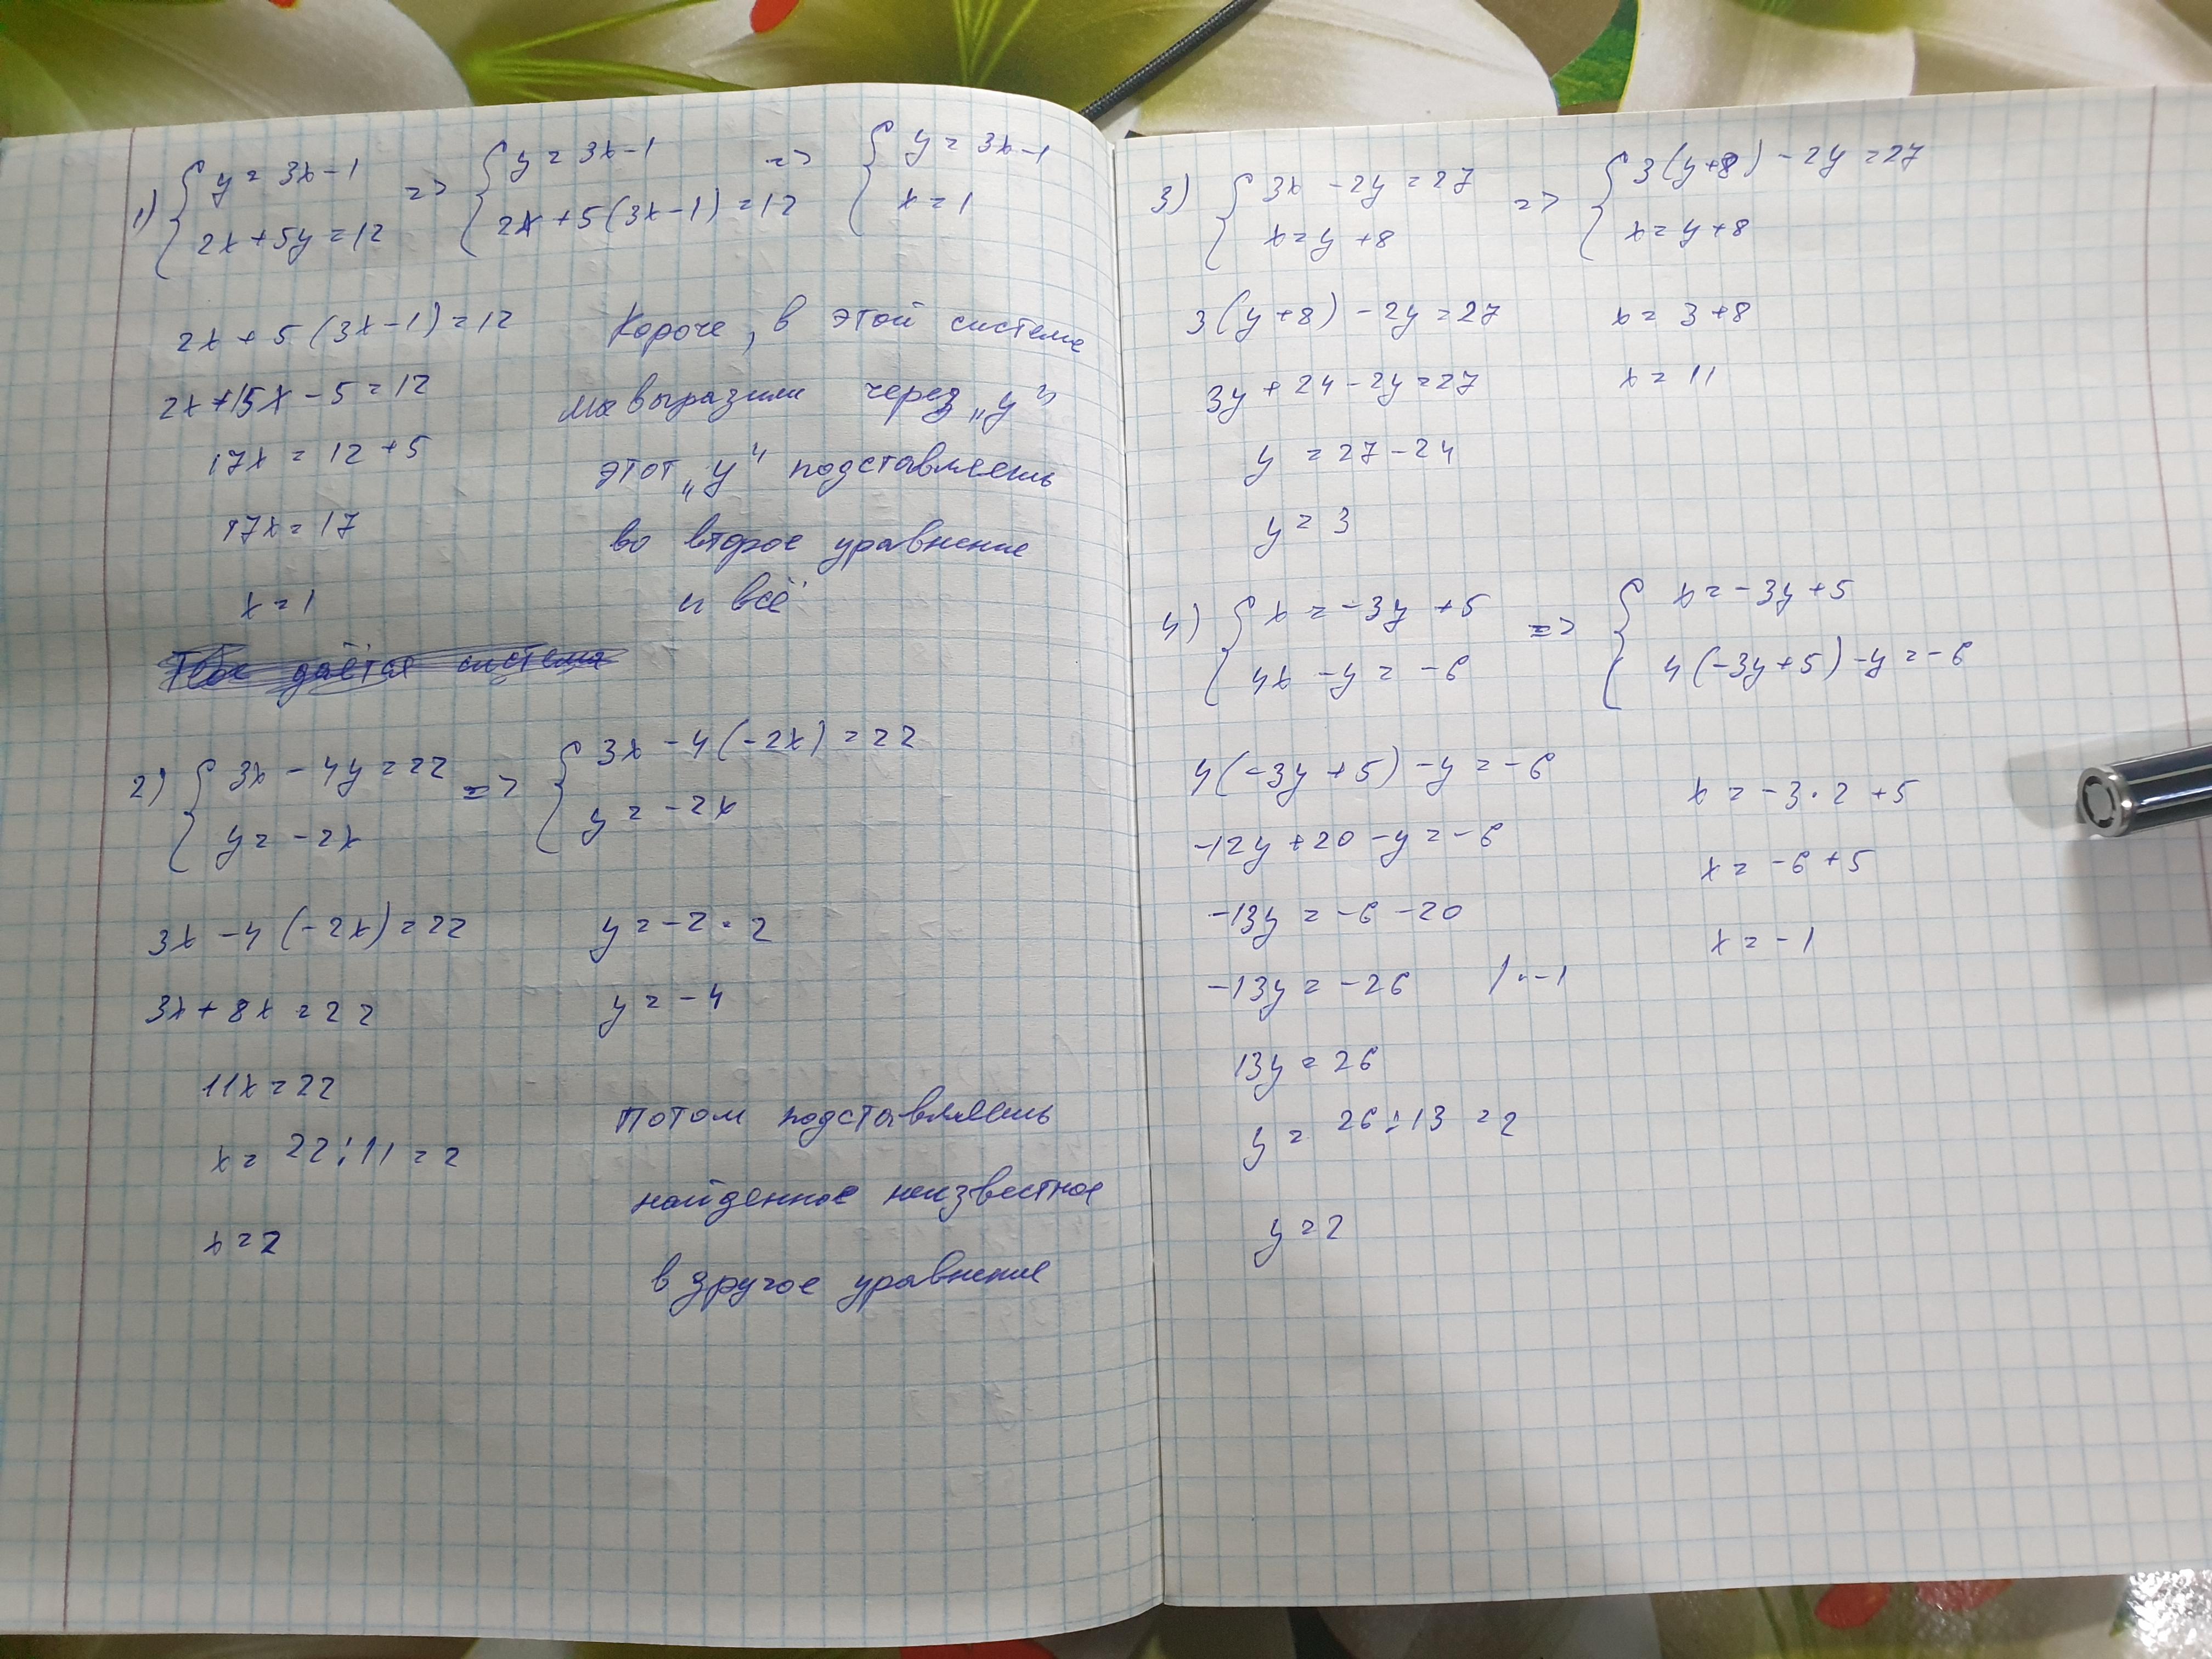 1) { y = 3x-1 => { y = 3x-1 => { y = 3x-1
2x+5y=12 2x+5(3x-1)=12 x=1
2x+5(3x-1)=12
2x+15x-5=12
17x = 12+5
17x=17
x=1
Короче, в этой системе
мы выразили через „y”
этот „y” подставляешь
во второе уравнение
и всё
Тебе даётся система
2) { 3x-4y=22 => { 3x-4(-2x)=22
y=-2x y=-2x
3x-4(-2x)=22
3x+8x=22
11x=22
x= 22:11=2
x=2
y=-2·2
y=-4
Потом подставляешь
найденное неизвестное
в другое уравнение
3) { 3x-2y=27 => { 3(y+8)-2y=27
x=y+8 x=y+8
3(y+8)-2y=27
3y+24-2y=27
y=27-24
y=3
x=3+8
x=11
4) { x=-3y+5 => { x=-3y+5
4x-y=-6 4(-3y+5)-y=-6
4(-3y+5)-y=-6
-12y+20-y=-6
-13y=-6-20
-13y=-26 /·-1
13y=26
y= 26:13=2
y=2
x=-3·2+5
x=-6+5
x=-1